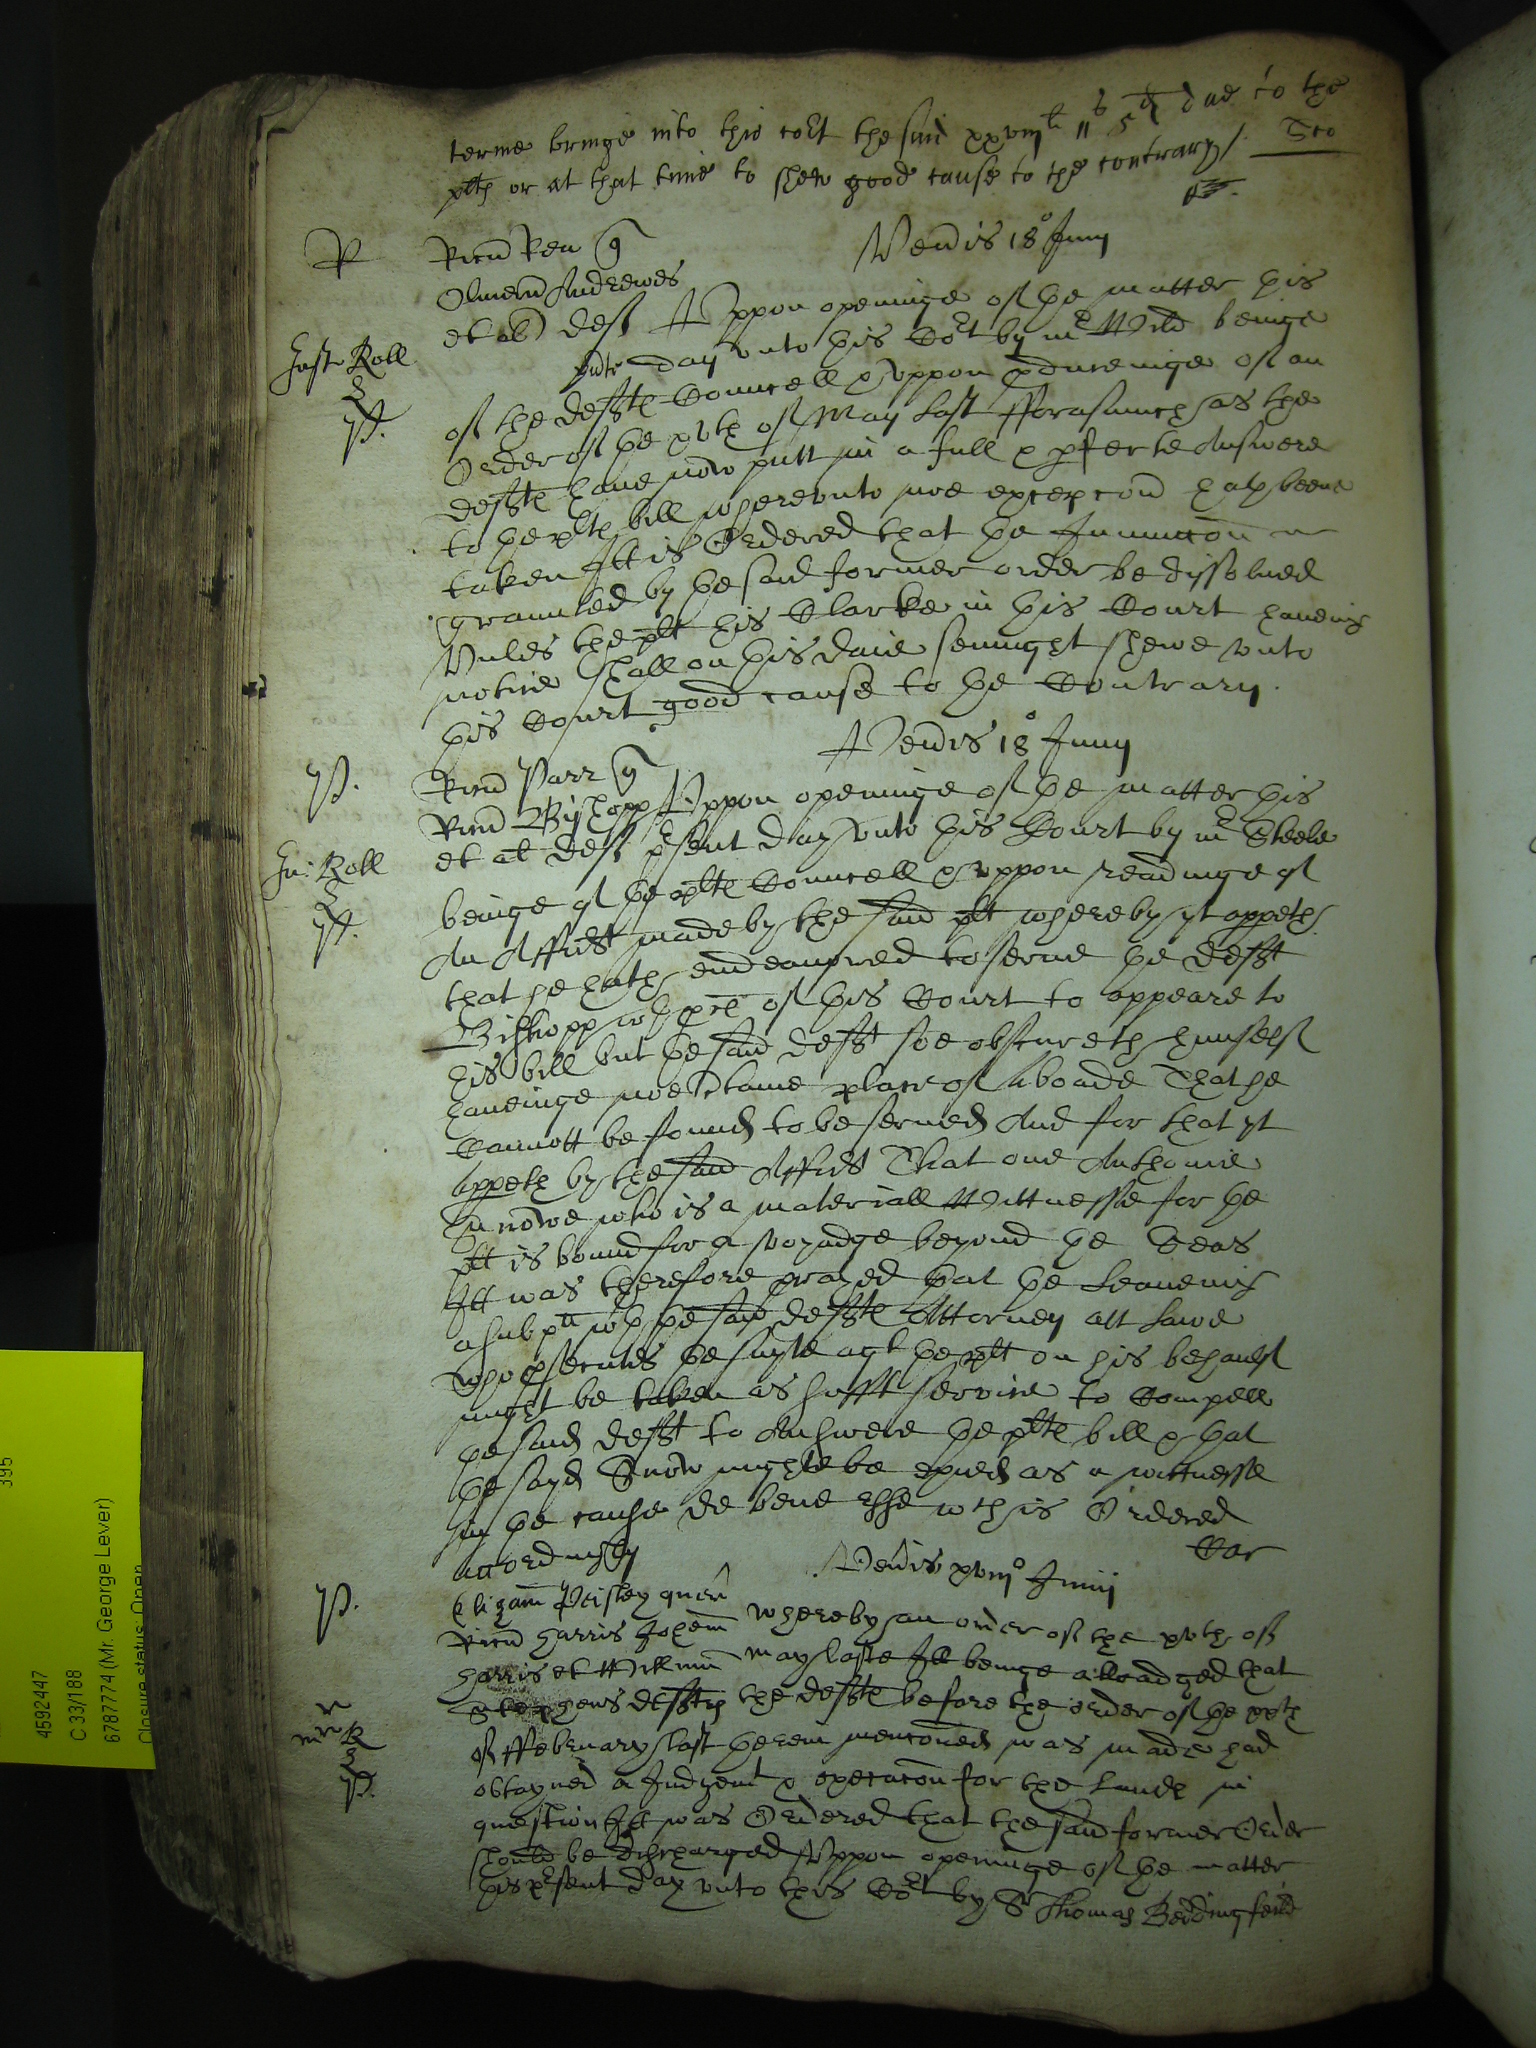 terme bringe into this cort the said xxviijli 11s 5d due to the
plts or at that time to shew good cause to the contrary /.
Sco
R
Ricus Rea q
Veneris 18o Junij
Oliverus Andrewes
et al deft Uppon openinge of the matter this
Hast: Roll
pnte day unto this Cort by mr Wild beinge
of the defts Councell & uppon pducinge of an
Order of the xvth of May last fforasmuch as the
defts have now putt in a full & pfecte Answere
to the plts bill whereunto noe excepcon hath beene
taken Itt is Ordered that the Iniunccon
graunted by the said former order be dissolved
Unles the plt his Clarke in this Court haveing
notice shall on this daie sennight shewe unto
this Court good cause to the Contrary.
Veneris 18o Junij
P.
Ricus Parr q
Ricus Bishopp Uppon openinge of the matter this
et al deft psent day unto this Court by mr Steele
Hn: Roll
beinge of the plts Councell & uppon readinge of
An Affidt made by the said plt whereby yt appeth
that he hath endeavored to serve the deft
Bishopp wth pces of this Court to appeare to
his bill but the said deft soe obscureth himself
haveinge noe certaine place of aboade That he
Cannott be found to be served And for that yt
appeth by the said Affidt That one Anthonie
Snowe who is a materiall Wittnesse for the
plt is bound for a voyadge beyond the Seas
Itt was therefore prayed that the Leaveing
a subpa wth the said defts Attorney att Lawe
who psecutes the suyte agt the plt on his behaulf
might be taken as sufft service to Compell
the said deft to Answere the plts bill & that
the sayd Snow might be exied as a wittnesse
in the cause de bene esse wch is Ordered
accordingly
Car
Veneris xviijo Junij
P.
Elizam Peisley quer
Ricus Harris Johem whereby an order of the xvth of
Harris et Willmum May laste Itt beinge alleadged that
Stephens defts the defts before the order of the xvth
of ffebruary last therein menconed was made had
obtayned a Judgemt & execucon for the lands in
question Itt was Ordered that the said former Order
should be discharged Uppon openinge of the matter
this psent day unto this Cort by Sr Thomas Beddingfeild
395
4592447
C 33/188
6787774 (Mr. George Lever)
Closure status: Open